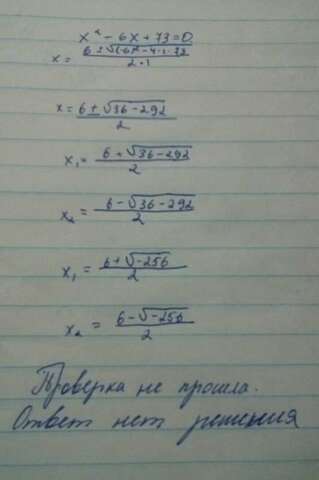 x² - 6x + 73 = 0
x = (6 ± √(-6)² - 4·1·73) / 2·1
x = (6 ± √36 - 292) / 2
x₁ = (6 + √36 - 292) / 2
x₂ = (6 - √36 - 292) / 2
x₁ = (6 + √-256) / 2
x₂ = (6 - √-256) / 2
Проверка не прошла.
Ответ нет решения